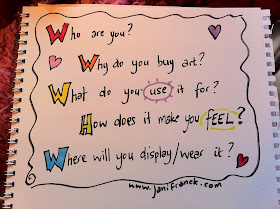 Who are you?
Why do you buy art?
What do you use it for?
How does it make you fEEL?
Where will you display/wear it?
www.janifranck.com